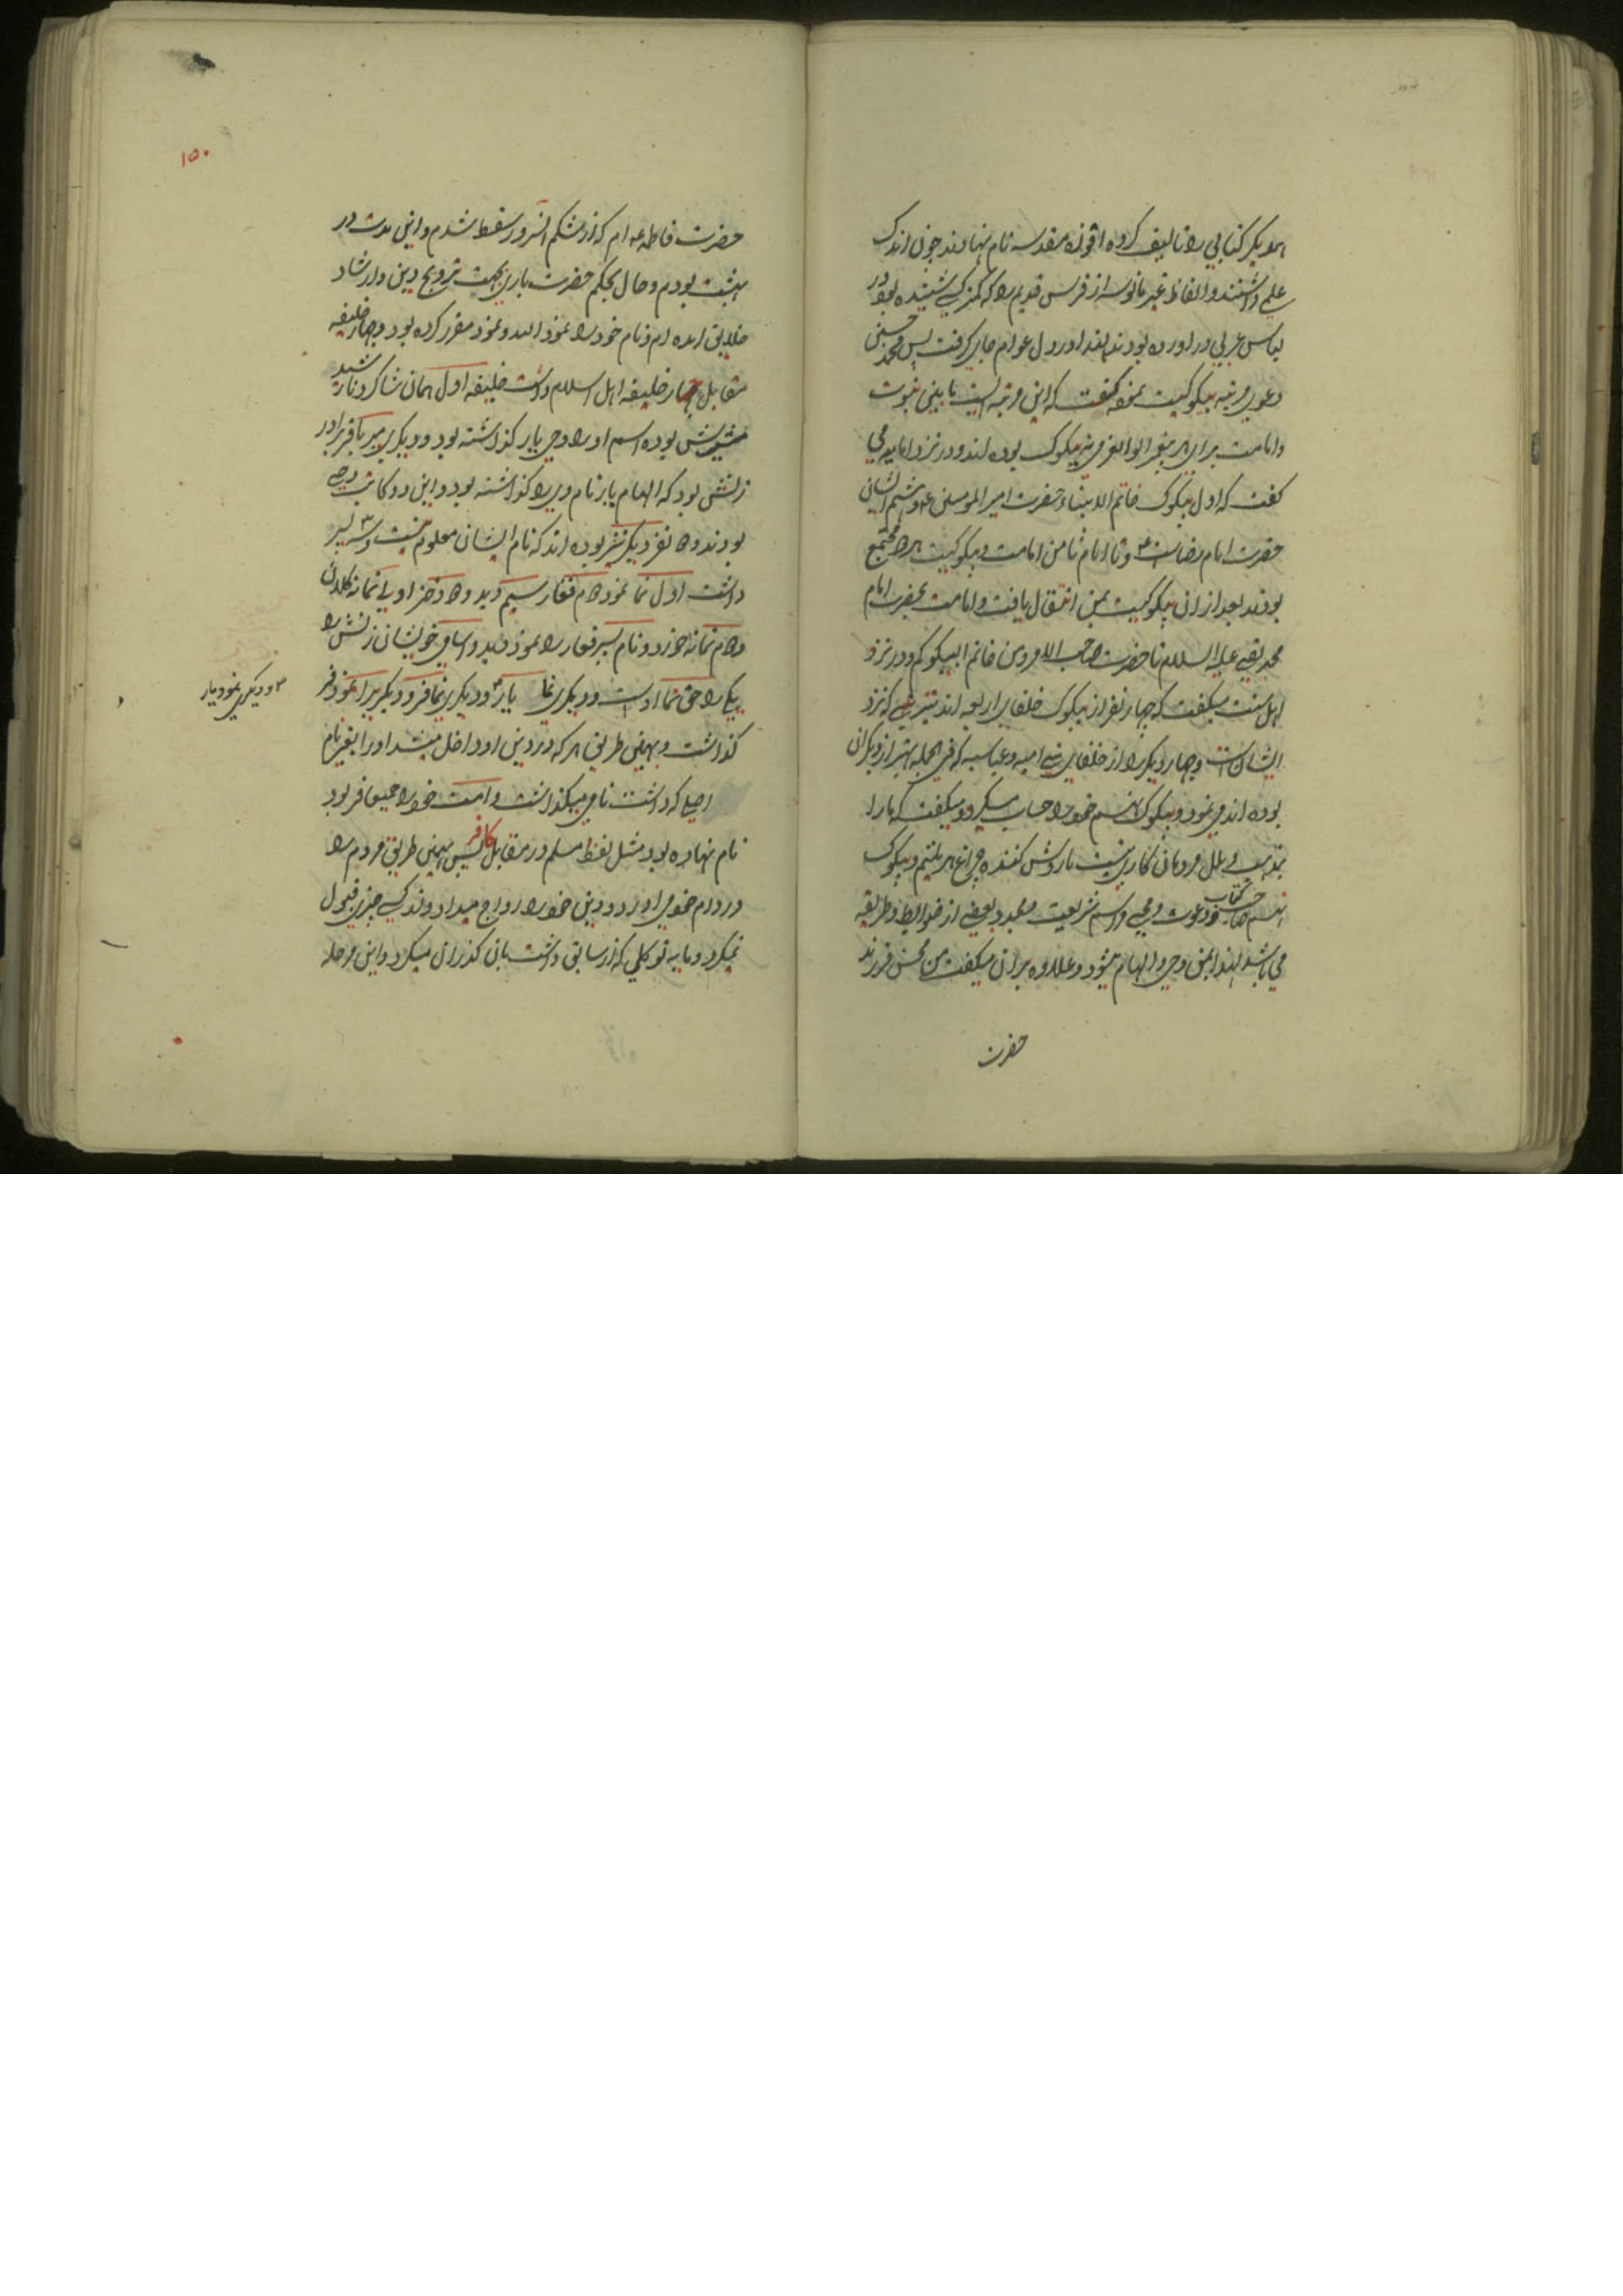 همدیگر کتابی را تالیف کرده اقوزه مقدسه نام نهادند چون اندک
علمی داشتند و الفاظ غیر مانوسه از فرس قدیم را که کمتر کسی شنیده بود در
لباس عربی در اورده بودند لهذا در دل عوام جای گرفت پس محمد حسین
دعوی مرتبه بیکوکیت نموده گفت که این مرتبه ایست مابین نبوت
و امامت برای هر پیغمبر الوالعزمی نه بیکوک بوده اند و در نزد امامیه می
گفت که اول بیکوک خاتم الانبیاء حضرت امیر المومنین ع و هشتم ایشان
حضرت امام رضاست ع و تا امام ثامن امامت و بیکوکیت هر دو مجتمع
بودند بعد از ان بیکوکیت بمن انتقال یافت و امامت بحضرت امام
محمد تقی علیه السلام تا حضرت صاحب الامر و من خاتم البیکوکم و در نزد
اهل سنت میگفت که چهار نفر از بیکوک خلفای اربعه اند بترتیبی که نزد
ایشان است و چهار دیگر را از خلفای بنی امیه و عباسیه که فی الجمله بهتر از دیگران
بوده اند می نمود و بیکوک نهم خود را حساب میکرد و میگفت که ما را
بمذهب و ملل مردمان کاری نیست ما روشن کننده چراغ هر ملتیم و بیکوک
نهم صاحب کتاب و دعوت و محیی مراسم شریعت و بعضی از ضوابط و طریقه
می باشد لهذا بمن وحی و الهام میشود و علاوه بران میگفت من محسن فرزند
حضرت
۱۵۰
حضرت فاطمه ع ام که از شکم انسرور سقط شدم و این مدت در
بهشت بودم و حال بحکم حضرت باری بجهت ترویج دین و ارشاد
خلایق امده ام و نام خود را نمود الله و نمود مقرر کرده بود و چهار خلیفه
مقابل چهار خلیفه اهل اسلام داشت خلیفه اول همان شاگرد نار رشید
مشورتش بوده اسم او را دوجی یار گذاشته بود و دیگری میر باقر برادر
زنش بود که الهام یار نام وی را گذاشته بود و این دو کاتب وحی
بودند و دو نفر دیگر نیز بوده اند که نام ایشان معلوم نیست و سه پسر
داشت اول نما نمود دوم فغار سیم دید و دو دختر او یی نمانه کلان
دوم نمانه خرد و نام پسر فغار را نمود دید و اسامی خویشان زنش را
یکی را حق نما ادست و دیگری نما یار ۳ و دیگری نما فر و دیگر پیرا نمود فر
۳ و دیگری نمود یار
گذاشت و بهمین طریق هر که در دین او داخل میشد او را بغیر نام
اصلی که داشت نامی میگذاشت و امت خود را
نام نهاده بود مثل لفظ مسلم در مقابل کافر پس بهمین طریق مردم را
در دام خود می اورد و دین خود را رواج میداد و از کسی چیزی قبول
نمیکرد و مایه توکلی که از سابق داشت بان گذران میکرد و این مرحله